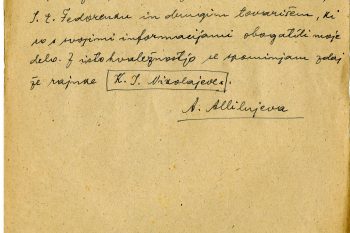 I. F. Fedorenku in drugim tovarišem, ki
so s svojimi informacijami obogatili moje
delo. Z isto hvaležnostjo se spominjam zdaj
že rajnke K. I. Nikolajeve.
A. Allilujeva